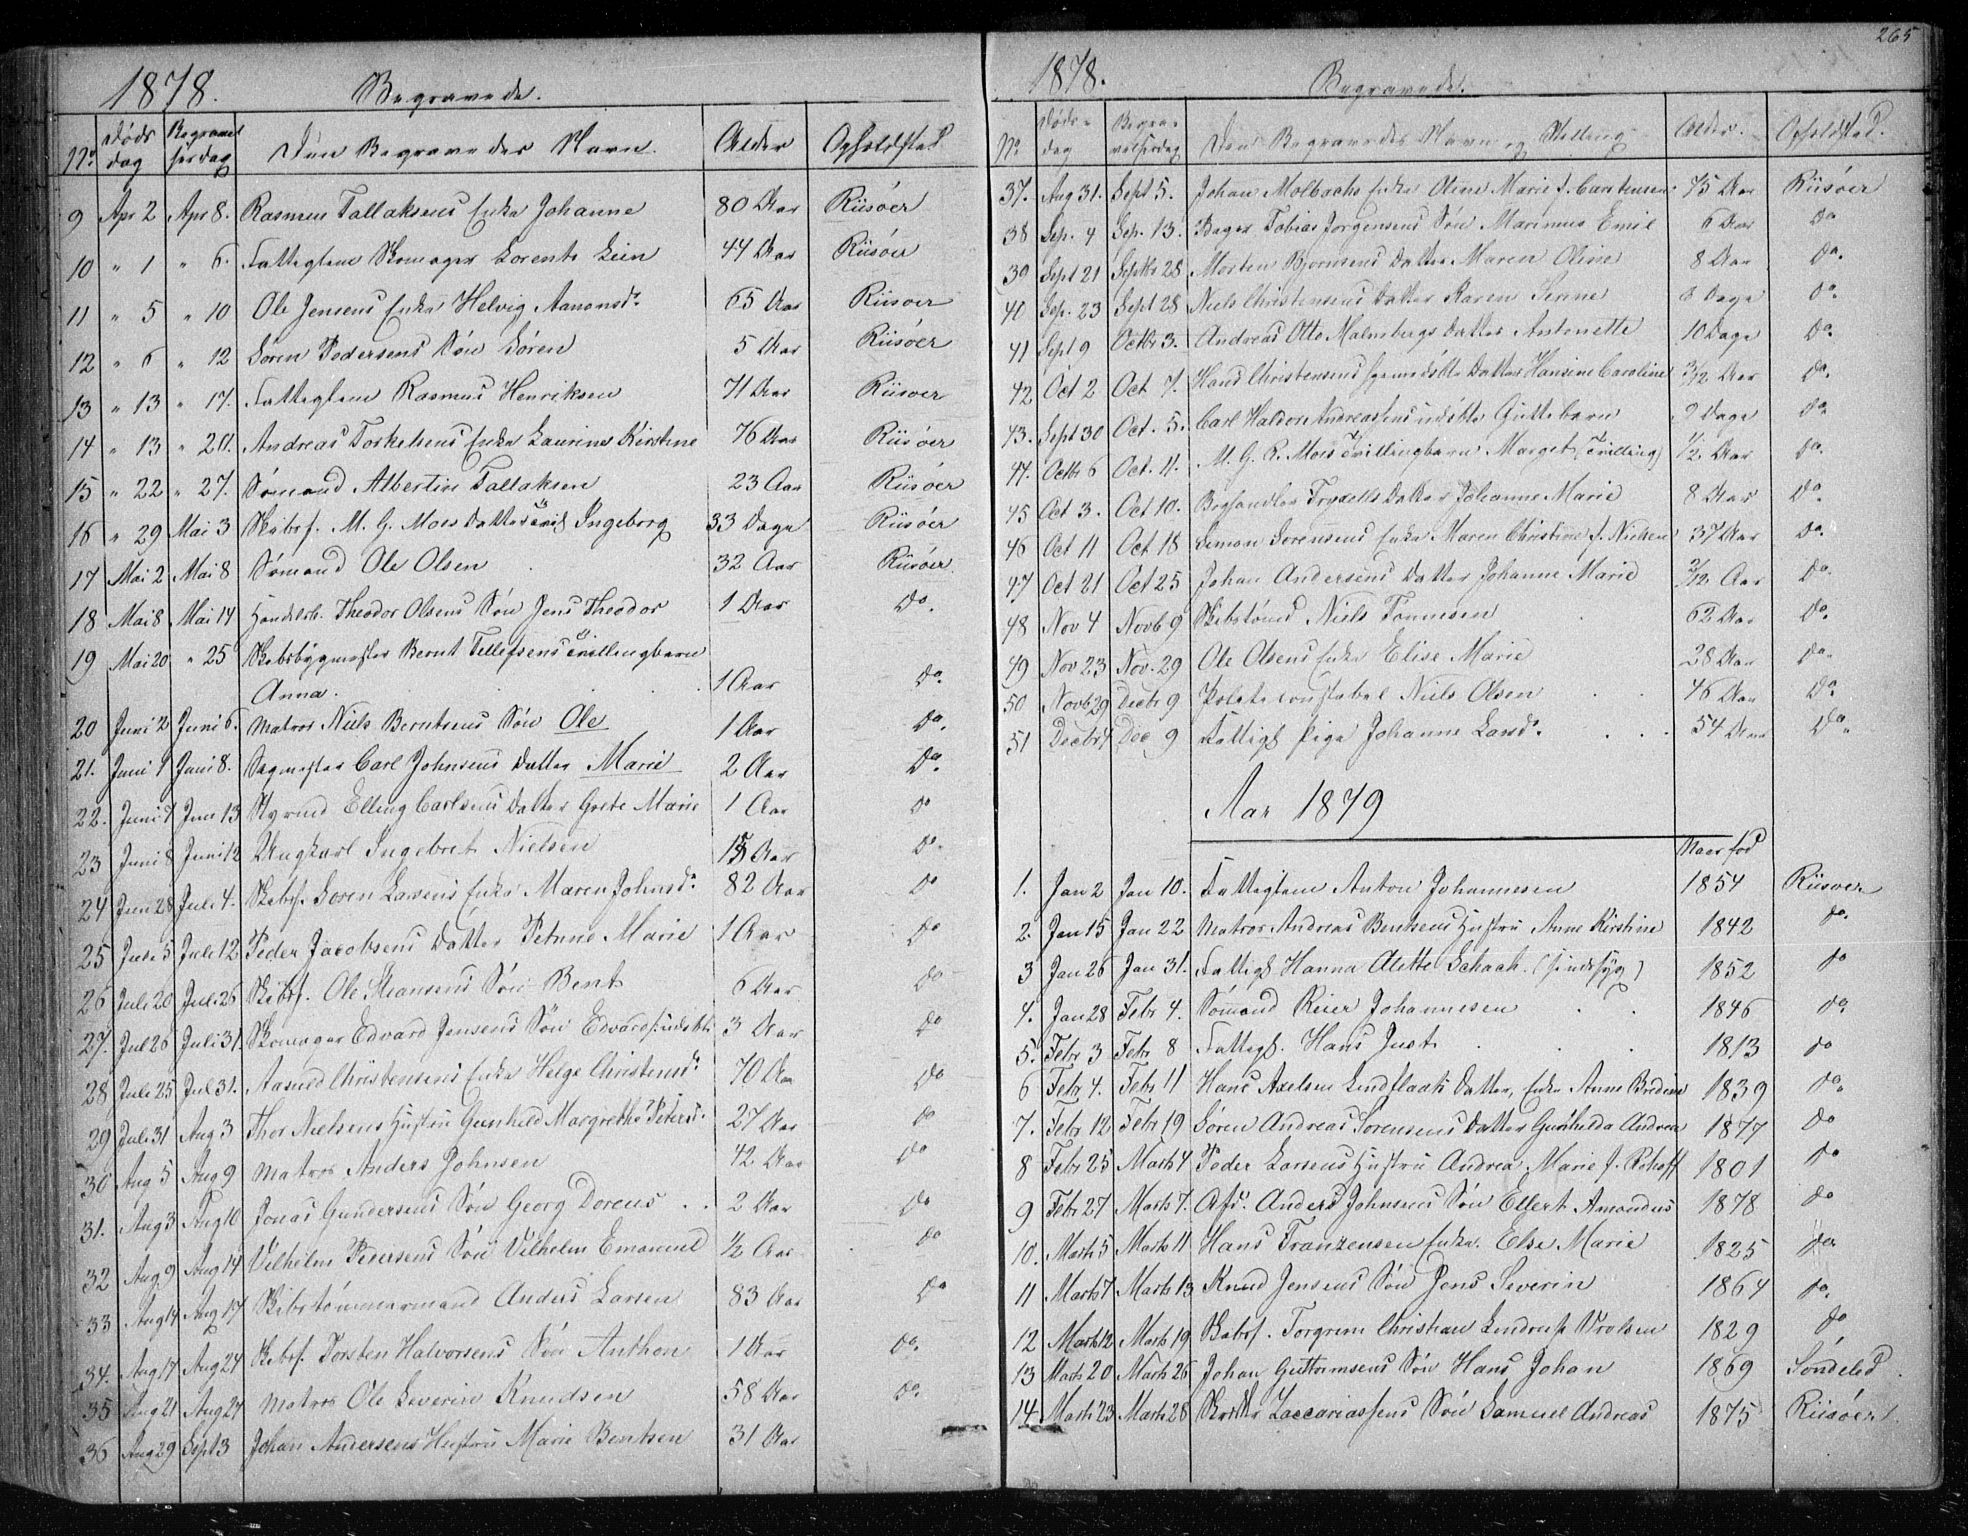 1878. Begravede.
No Døds dag Begravelsesdag Den Begravedes Navn. Alder Opholdsted
9 Apr 2 Apr 8. Rasmus Tallaksens Enke Johanne 80 Aar Riisöer
10 " 1 " 6. Fattiglem Skomager Lorents Lien 44 Aar Riisöer
11 " 5 " 10 Ole Jensens Enke Helvig Aanonsd. 65 Aar Riisoer
12 " 6 " 12 Sören Pedersens Søn Sören 5 Aar Riisöer
13 " 13 " 17. Fattiglem Rasmus Henriksen 71 Aar Riisoer
14 " 13 " 20. Andreas Torkelsens Enke Laurine Kirstine 76 Aar Riisöer
15 " 22 " 27. Sømand Albertin Tallaksen 23 Aar Riisöer
16 " 29 Mai 3 Skibsf. M. G. Moes Datter Ingeborg 33 Dage Riisöer
17 Mai 2 Mai 8 Sømand Ole Olsen 32 Aar Riisöer.
18 Mai 8 Mai 14 Handelsb. Theodor Olsens Søn Jens Theodor 1 Aar Do.
19 Mai 20 " 25 Skibsbygmester Bernt Tellefsens Tvillingbarn
Anna. 1 Aar Do.
20 Juni 2 Juni 6. Matros Niels Berntsens Søn Ole 1 Aar Do.
21. Juni 1 Juni 8. Sagmester Carl Johnsens Datter Marie 2 Aar Do.
22. Juni 7 Juni 13 Styrmd Elling Carlsens Datter Grete Marie 1 Aar Do
23 Juni 8 Juni 12 Ungkarl Ingebret Nielsen 15 Aar Do.
24 Juni 28 Juli 4. Skibsf. Soren Larsens Enke Maren Johnsd. 82 Aar Do
25 Juli 5 Juli 12 Peder Jacobsens Datter Petrine Marie 1 Aar Do
26 Juli 20 Juli 26 Skibsf. Ole Steansens Søn Bent 6 Aar Do
27. Juli 26 Juli 31. Skomager Edvard Jensens Søn Edvard 3 Aar Do
28 Juli 25 Juli 31. Aasuld Christensens Enke Helge Christensd. 70 Aar Do
29 Juli 31 Aug 3 Thor Nielsens Hustru Gunhild Margrethe Petersd. 27 Aar Do
30 Aug 5 Aug 9 Matros Anders Johnsen 42 Aar Do
31. Aug 3 Aug 10 Jonas Gundersens Søn Georg Doreus 2 Aar Do
32 Aug 9 Aug 14 Vilhelm Pedersens Søn Vilhelm Emanuel 1/2 Aar Do
33 Aug 14 Aug 17 Skibstömmermand Anders Larsen 83 Aar Do
34. Aug 17 Aug 24 Skibsf. Torsten Halvorsens Søn Anthon 1 Aar Do.
35 Aug 21 Aug 27 Matros Ole Severin Knudsen 58 Aar Do.
36 Aug 29 Sept 3 Johan Andersens Hustru Marie Bentsen 31 Aar
265
1878. Begravede.
No Døds-dag Begravelsesdag Den Begravedes Navn og Stilling Alder. Opholdsted.
37. Aug 31. Sept 5. Johan Molbachs Enke Oline Marie f. Carstensen 75 Aar Riisøer
38 Sep. 4 Sep. 13. Bager Tobias Jörgensens Søn Marinus Emil 6 Aar Do
39 Sept 21 Septbr 28 Morten Bjornsens Datter Maren Oline 8 Aar Do.
40 Sep. 23 Sept 28 Niels Christensens Datter Karen Senne 8 Dage Do.
41 Sept 9 Octbr 3. Andreas Otto Malmbergs Datter Antonette 10 Dage Do.
42 Oct 2 Oct 7. Hans Christensens hjemedøbte Datter Hansine Caroline 3/12 Aar Do.
43. Sept 30 Oct. 5. Carl Haldors Andreassens udøbte Guttebarn 9 Dage Do.
44. Octbr 6 Oct. 11. M. G. R. Moes Tvillingbarn Marget, (Tvilling) 1/2 Aar Do.
45 Oct 3. Oct 10. Boghandler Frydells Datter Johanne Marie 8 Aar Do.
46 Oct 11 Oct 18 Simon Sorensens Enke Maren Christine f. Nielsen 37 Aar Do.
47 Oct 21 Oct 25 Johan Andersens Datter Johanne Marie 2/12 Aar Do.
48 Nov 4 Novb 9 Skibstømd Niels Tønnesen 62 Aar Do.
49 Nov 23 Nov. 29 Ole Olsens Enke Elise Marie 28 Aar Do.
50 Novb 29 Decbr 9 Politiconstabel Niels Olsen 46 Aar Do.
51 Decbr 4 Dec 9 Fattigl. Pige Johanne Larsd. 54 Aar Do.
Aar 1879
Naar fød
1. Jan 2 Jan 10. Fattiglem Anton Johannesen 1854 Riisoer
2. Jan 15 Jan 22 Matros Andreas Bentsens Hustru Anne Kirstine 1842 Do.
3 Jan 26 Jan 31. Fattigl. Hanna Alette Schach. (sindssyg) 1852 Do
4. Jan 28 Febr 4. Sømand Reier Johannesen 1846 Do.
5. Febr 3 Febr 8 Fattigl. Hans Just 1813 Do
6 Febr 4. Febr 11 Hans Axelsen Lindflaats Datter, Enke Anne Bredine 1839 Do.
7. Febr 12 Febr 19 Sören Andreas Sorensens Datter Gunhilda Andrea 1877 Do
8 Febr 25 Marts 4 Peder Larsens Hustru Andrea Marie f. Rohoff 1801 Do
9 Febr 27 Marts 7. Afd. Anders Johnsens Søn Ellert Amandus 1878 Do
10. Marts 5 Marts 11 Hans Franzensen Enke. Else Marie 1825 Do
11 Marts 7 Marts 13 Knud Jensens Søn Jens Severin 1864 Do.
12 Marts 12 Marts 19 Skibsf. Torgrim Christian Lindrup Wrolsen 1829 Do
13 Marts 20 Marts 26 Johan Guttormsens Søn Hans Johan 1869 Söndeled.
14. Marts 23 Marts 28 Zaccariassens Søn Samuel Andreas 1875 Riisöer.